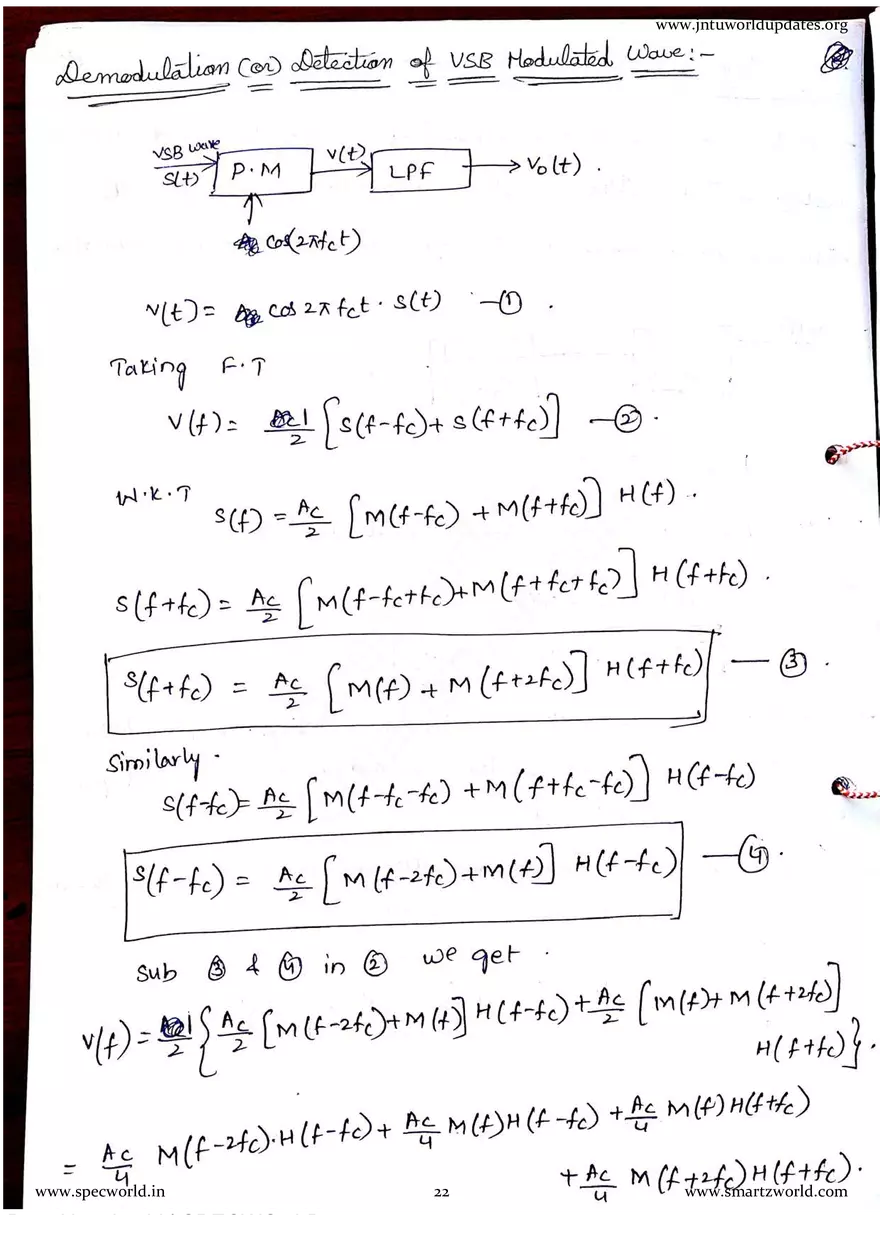 www.jntuworldupdates.org
Demodulation (or) Detection of VSB Modulated Wave:-
VSB wave
S(t)
P.M
V(t)
LPF
Vo(t) .
cos(2πfct)
V(t) = cos 2π fct · S(t) — ① .
Taking F.T
V(f) = 1/2 [S(f-fc) + S(f+fc)] — ② .
W.K.T
S(f) = Ac/2 [M(f-fc) + M(f+fc)] H(f) .
S(f+fc) = Ac/2 [M(f-fc+fc)+M(f+fc+fc)] H(f+fc) .
S(f+fc) = Ac/2 [M(f) + M(f+2fc)] H(f+fc) — ③ .
Similarly .
S(f-fc) = Ac/2 [M(f-fc-fc) + M(f+fc-fc)] H(f-fc)
S(f-fc) = Ac/2 [M(f-2fc)+M(f)] H(f-fc) — ④ .
Sub ③ & ④ in ② we get .
V(f) = 1/2 {Ac/2 [M(f-2fc)+M(f)] H(f-fc) + Ac/2 [M(f)+M(f+2fc)]
H(f+fc)} .
= Ac/4 M(f-2fc)·H(f-fc) + Ac/4 M(f)H(f-fc) + Ac/4 M(f)H(f+fc)
+ Ac/4 M(f+2fc)H(f+fc).
www.specworld.in
22
www.smartzworld.com